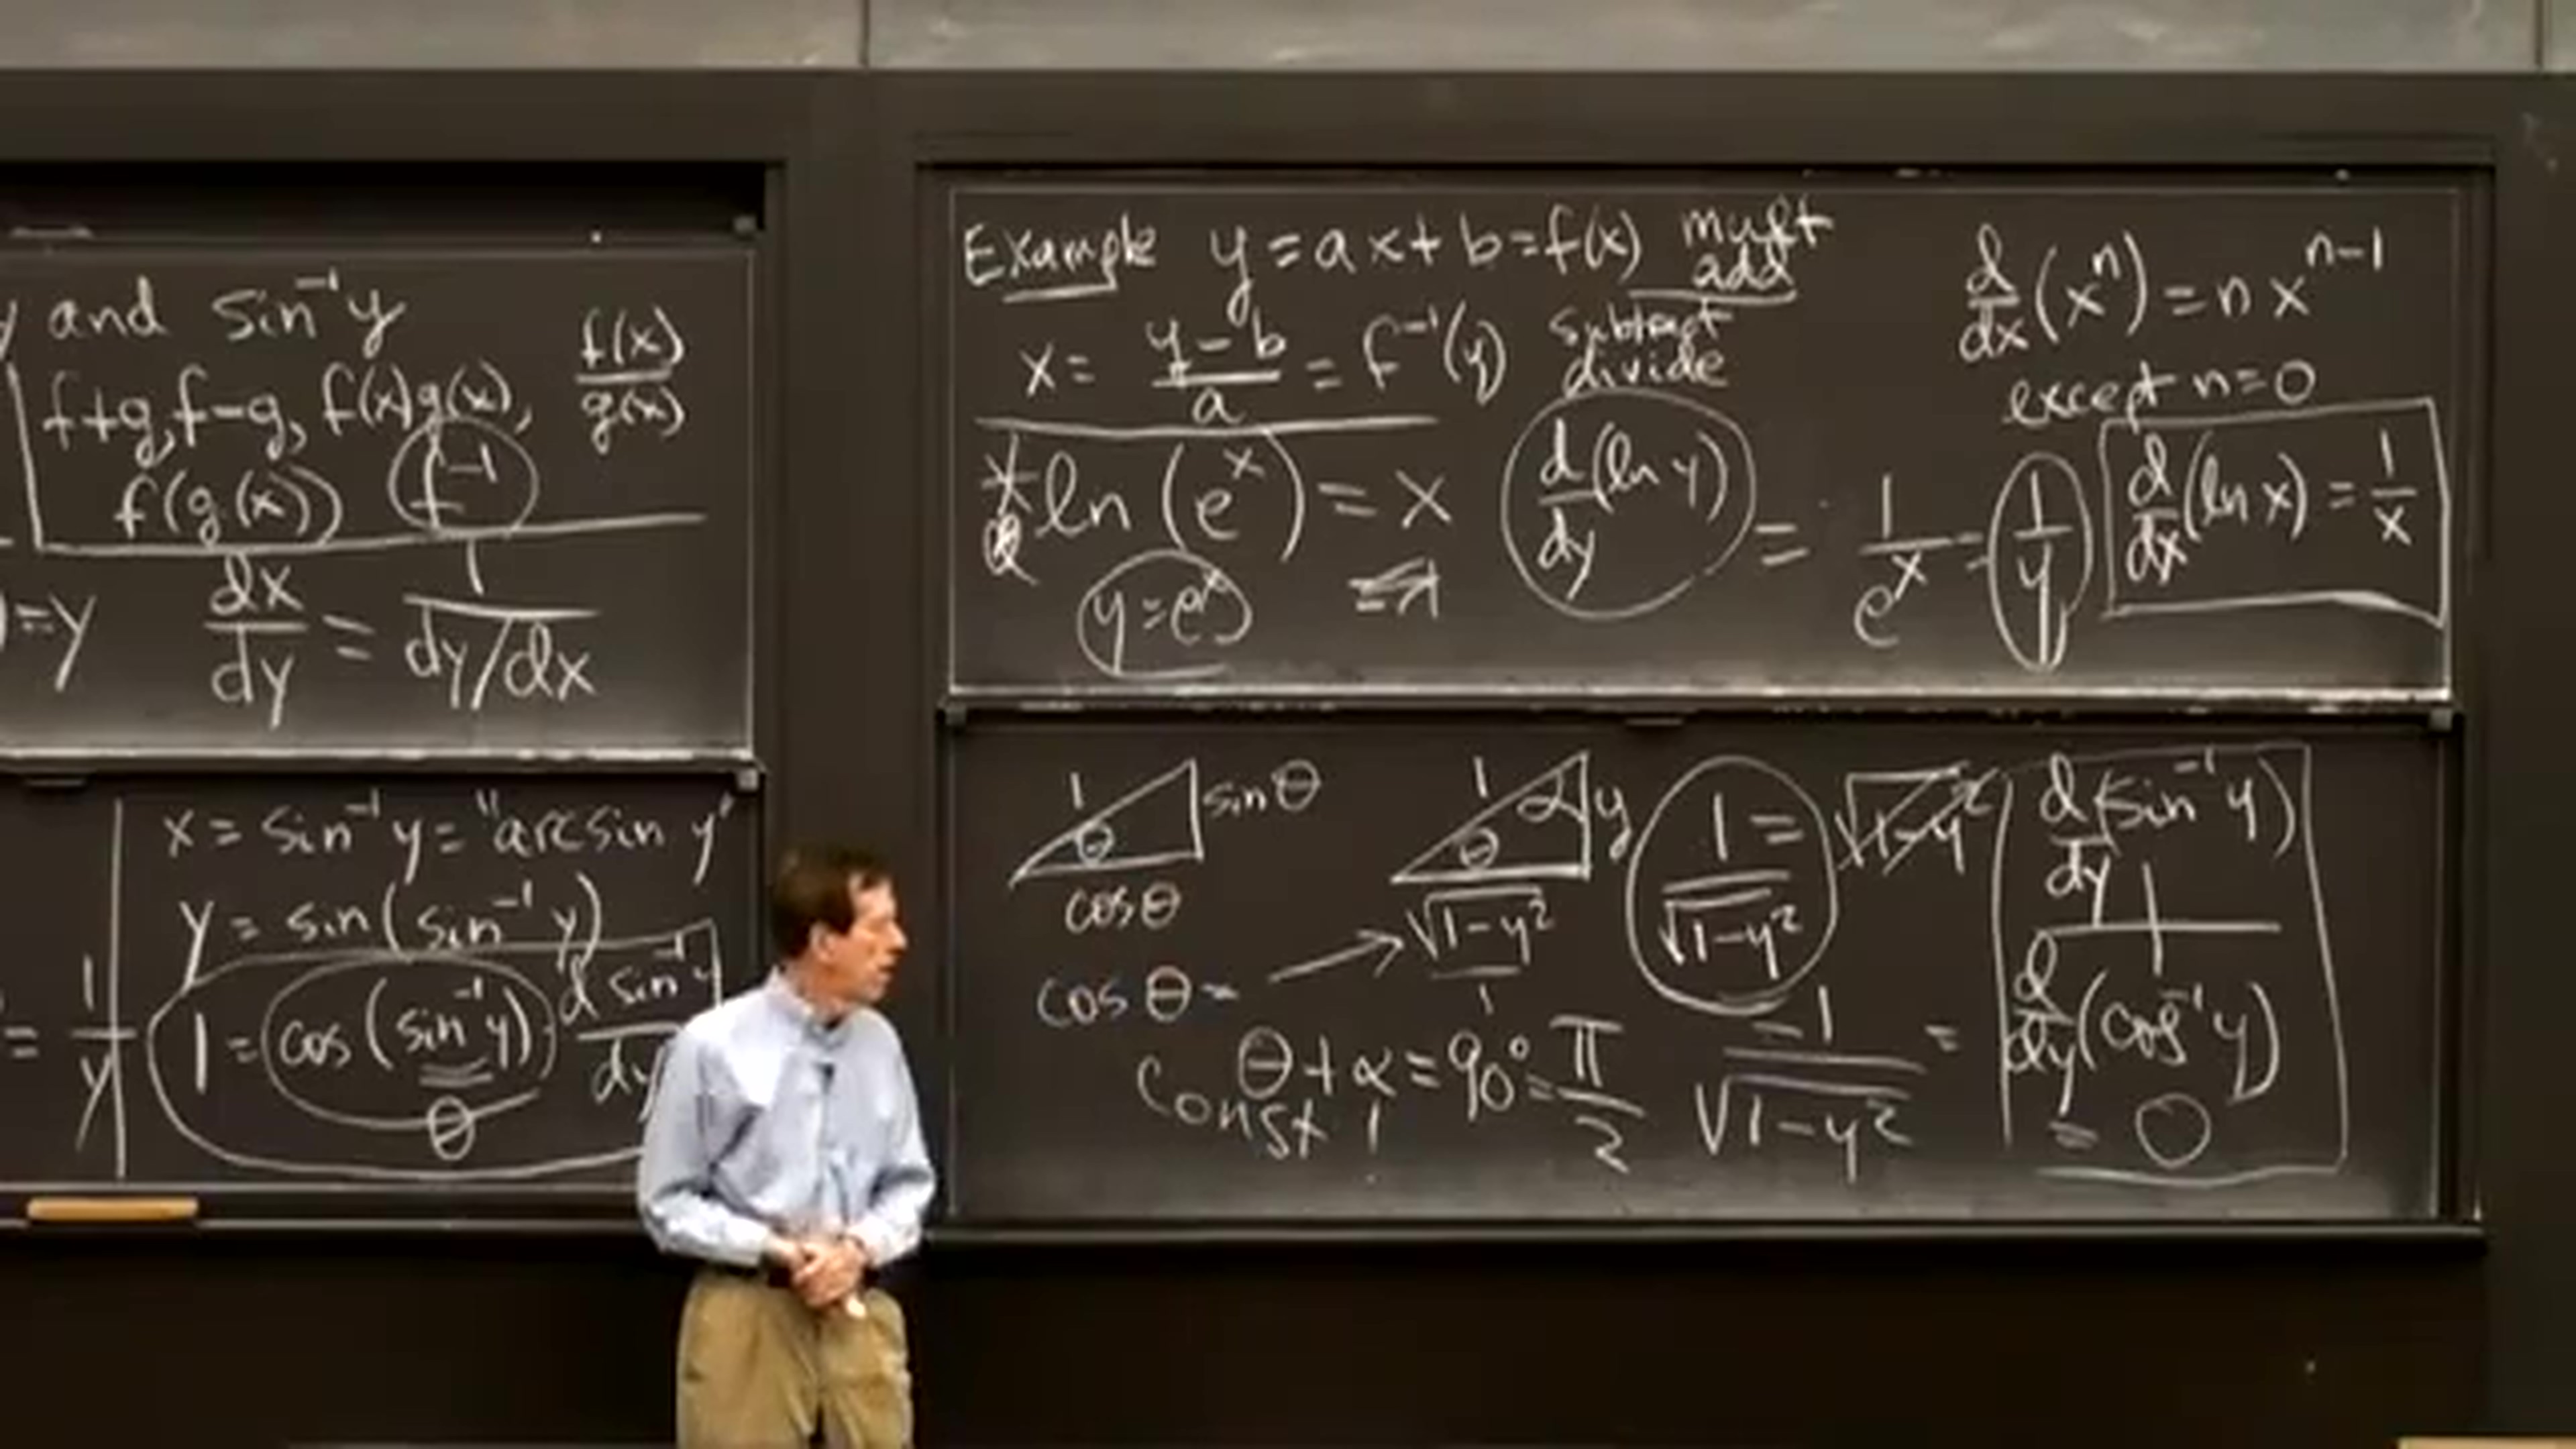 y and sin⁻¹y
f+g, f-g, f(x)g(x), f(x)/g(x)
f(g(x)) f⁻¹
)=y dx/dy = 1/(dy/dx)
x = sin⁻¹y = "arcsin y"
y = sin(sin⁻¹y)
= 1/y
1 = cos(sin⁻¹y) d sin⁻¹y/dy
θ
Example y = ax + b = f(x) mult
add
x = (y-b)/a = f⁻¹(y) subtract
divide
ln(eˣ) = x d/dy(ln y) = 1/eˣ = 1/y
y = eˣ
d/dx(xⁿ) = n xⁿ⁻¹
except n=0
d/dx(ln x) = 1/x
1 sin θ
θ
cos θ
1 α y
θ
√(1-y²)
1
cos θ = → 
1 = √(1-y²)
1/√(1-y²)
θ + α = 90° = π/2
const!
-1/√(1-y²) =
d/dy(sin⁻¹y)
+
d/dy(cos⁻¹y)
= 0